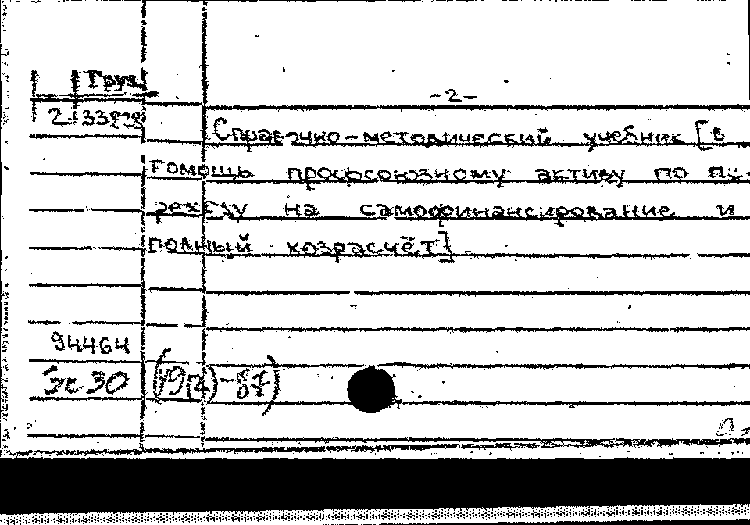 -2-
Груз
2 33828
Справочно-методический учебник [в
помощь профсоюзному активу по пе-
реходу на самофинансирование и
полный хозрасчёт]
94464
30 (19(2)-87)